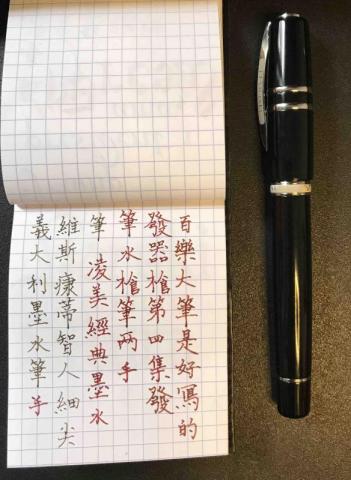 百樂大筆是好寫的
發器槍第四集發
筆水槍筆兩手
筆 凌美經典墨水
維斯康蒂智人細尖
義大利墨水筆手